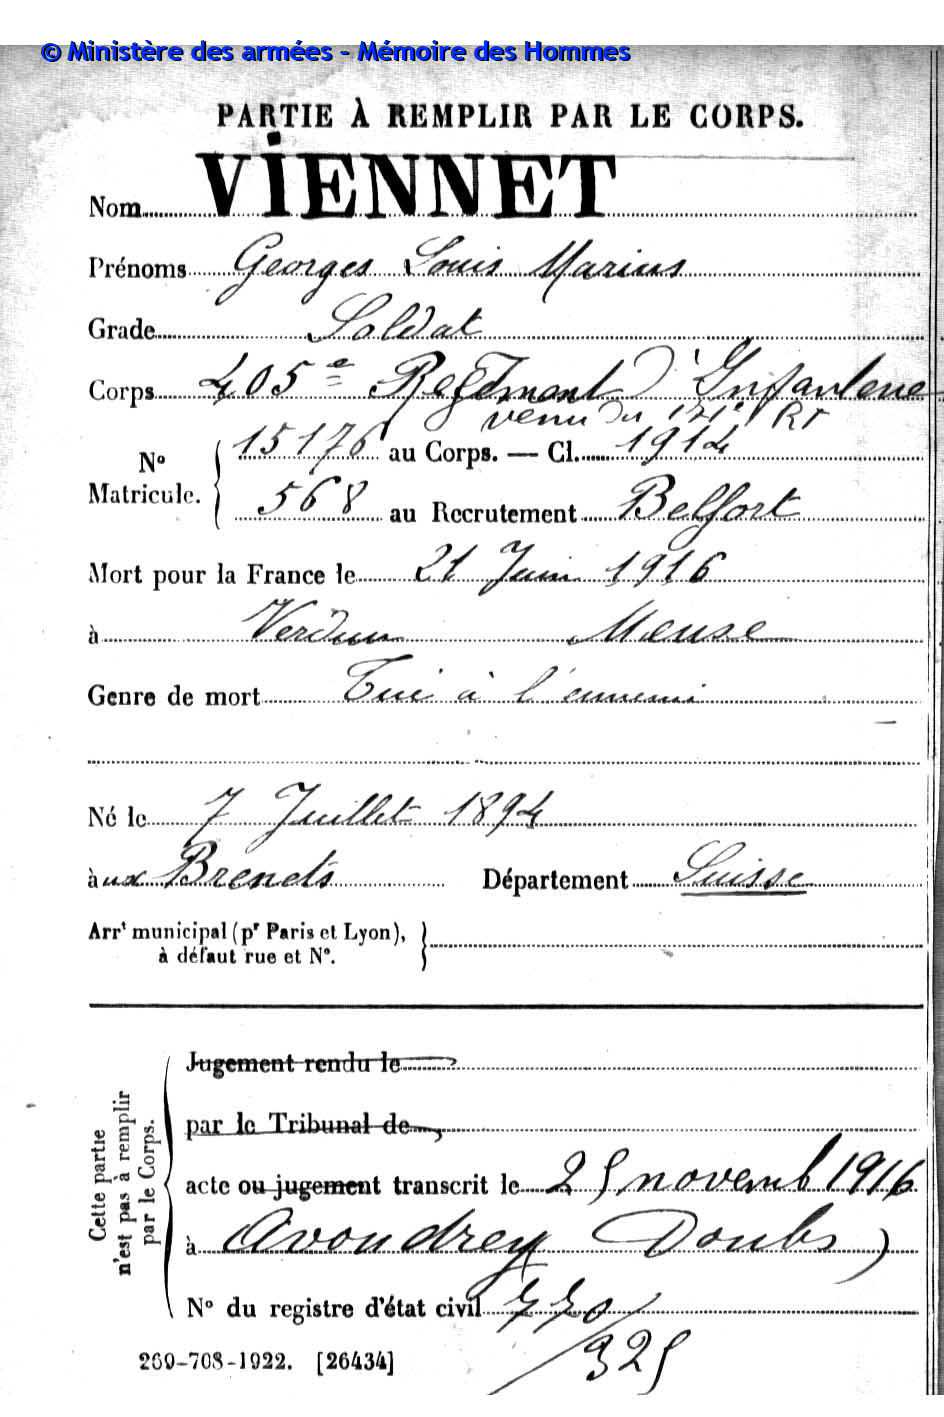 © Ministère des armées - Mémoire des Hommes
PARTIE À REMPLIR PAR LE CORPS.
Nom VIENNET
Prénoms Georges Louis Marius
Grade Soldat
Corps 405e Régiment d'Infanterie
venu du 171e RI
15176 au Corps. — Cl. 1914
No
Matricule.
568 au Recrutement Belfort
Mort pour la France le 21 Juin 1916
à Verdun Meuse
Genre de mort Tué à l'ennemi
Né le 7 Juillet 1894
à ux Brenets Département Suisse
Arrt municipal (pr Paris et Lyon),
à défaut rue et No.
Cette partie
n'est pas à remplir
par le Corps.
Jugement rendu le
par le Tribunal de
acte ou jugement transcrit le 25 novemb 1916
à Avoudrey Doubs)
No du registre d'état civil 770/
325
260-708-1922. [26434]